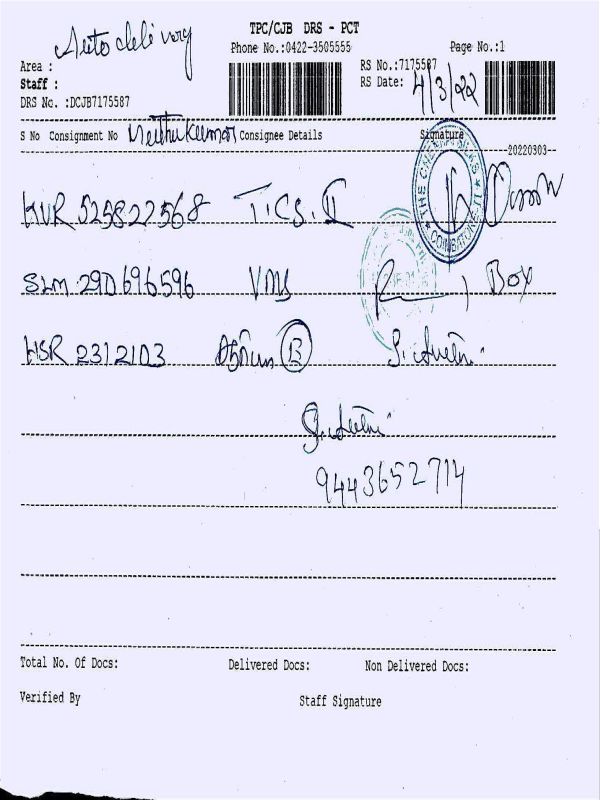 Auto delivery
TPC/CJB DRS - PCT
Phone No.:0422-3505555
Page No.:1
Area :
RS No.:7175587
Staff :
RS Date: 4/3/22
DRS No. :DCJB7175587
S No Consignment No Muthukumar Consignee Details Signature
20220303
HUR 525827568 T.I.C.S. II
COIMBATORE
SLM 290696596 VMS Box
HSR 2312103 B
9443652714
Total No. Of Docs: Delivered Docs: Non Delivered Docs:
Verified By Staff Signature